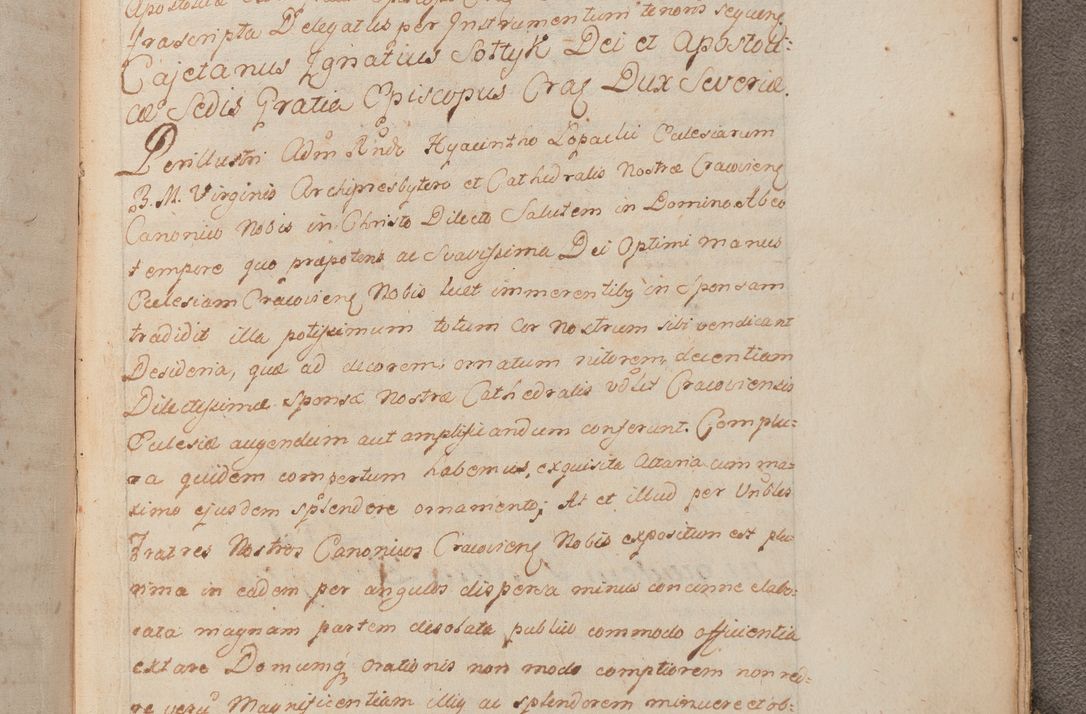 frascripta Delegatus per Instrumentum tenoris sequenȩ
Cajetanus Ignatius Sołtyk Dei et Apostoli=
cæ Sedis Gratia Episcopus Cracȩ Dux Severiæ.
Perillustri Adm Rndo Hyacintho Łopacki Ecclesiarum
B. M. Virginis Archipresbytero et Cathedralis Nostræ Cracovienȩ
Canonico Nobis in Christo Dilecto Salutem in Domino. Ab eo
tempore quo præpotens ac Svavissima Dei Optimi manus
Ecclesiam Cracovienȩ Nobis licet immerentibȩ in Sponsam
tradidit illa potissimum totum Cor Nostrum sibi vendicant
Desideria, quæ ad decorem, ornatum nitorem, decentiam
Dilectissimæ Sponsæ Nostræ Cathedralis vdlt Cracoviensis
Ecclesiæ augendum aut amplificandum conferunt. Complu=
ra quidem compertum habemus, exquisita Altaria cum ma=
ximo ejusdem splendore ornamento; At et illud per Vnbles
Fratres Nostros Canonicos Cracovienȩ Nobis expositum est plu=
rima in eadem per angulos dispersa minus concinne elabo=
rata magnam partem desolata publico commodo officientia
extare Domumqȝ orationis non modo comptiorem non red=
de verũ Magnificentiam illiȩ ac splendorem minuere et ob=